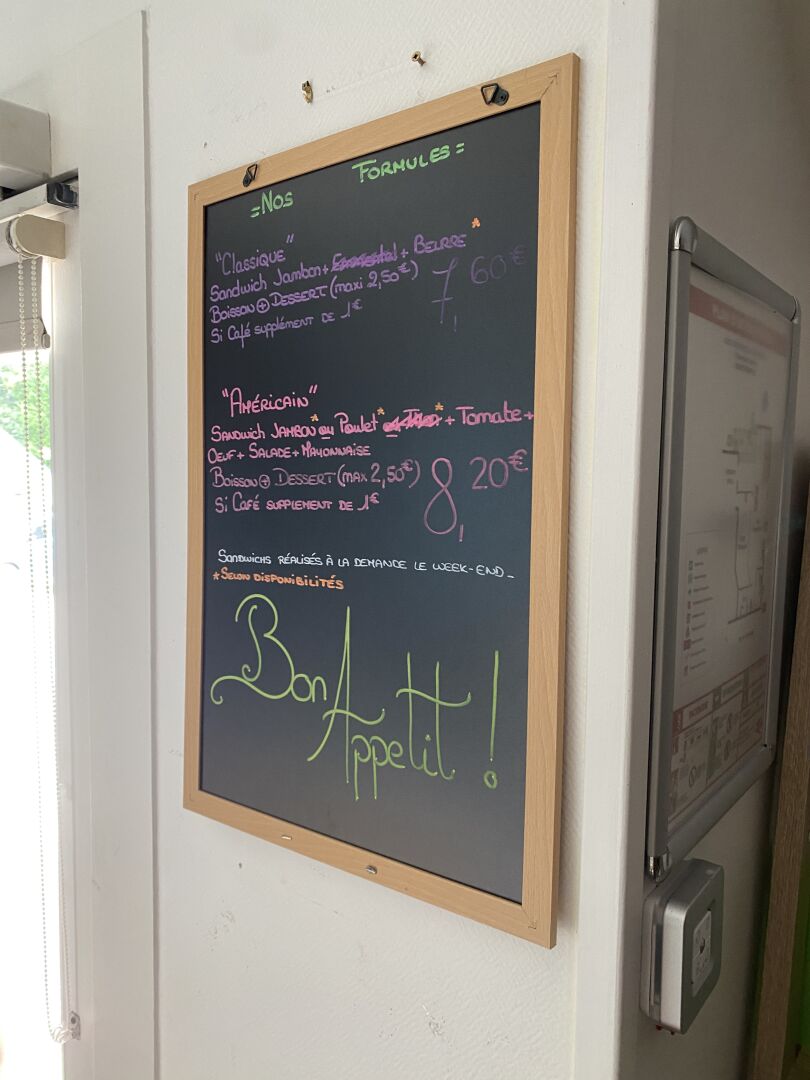 =Nos Formules=
"Classique"
Sandwich Jambon + Emmental + Beurre *
Boisson + Dessert (maxi 2,50€) 7,60€
Si Café supplément de 1€
"Américain"
Sandwich Jambon* ou Poulet* ou Thon* + Tomate +
Oeuf + Salade + Mayonnaise
Boisson + Dessert (max 2,50€) 8,20€
Si Café supplement de 1€
Sandwichs réalisés à la demande le week-end_
*Selon disponibilités
Bon
Appetit !